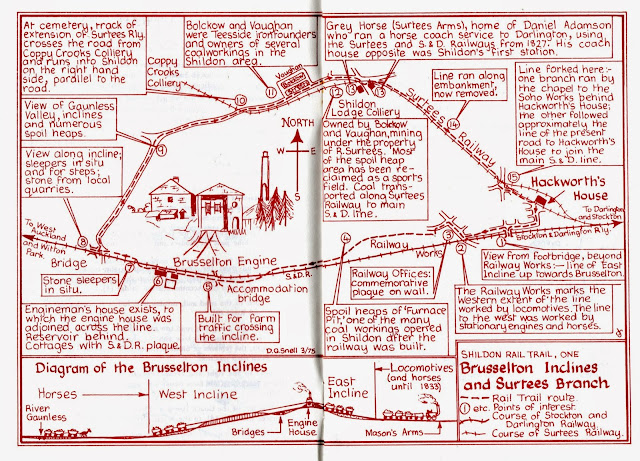 At cemetery, track of
extension of Surtees Rly.
crosses the road from
Coppy Crooks Colliery
and runs into Shildon
on the right hand
side, parallel to the
road.
Bolckow and Vaughan
were Teesside ironfounders
and owners of several
coalworkings in the
Shildon area.
Grey Horse (Surtees Arms), home of Daniel Adamson
who ran a horse coach service to Darlington, using
the Surtees and S.& D. Railways from 1827. His coach
house opposite was Shildon's "first station.
Coppy
Crooks
Colliery
10
11
Vaughan
Bolckow
Street
12
13
Shildon
Lodge Colliery
Line ran along
embankment,
now removed.
Line forked here:-
one branch ran by
the chapel to the
Soho Works behind
Hackworth's House;
the other followed
approximately the
line of the present
road to Hackworth's
House to join the
main S.& D. line.
View of Gaunless
Valley, inclines
and numerous
spoil heaps.
NORTH
W
E
S
Owned by Bolckow
and Vaughan, mining
under the property
of R.Surtees. Most
of the spoil heap
area has been re-
claimed as a sports
field. Coal trans-
ported along Surtees
Railway to main
S.& D. line.
Surtees Railway
14
15
Hackworth's
House
9
View along incline;
sleepers in situ
and for steps;
stone from local
quarries.
To West
Auckland
and Witton
Park
8
Bridge
7
Brusselton Engine
6
S.& D.R.
5
Accommodation
bridge
4
Railway
Works
3
2
1
Stockton & Darlington Rly.
To Darlington
and Stockton
Stone sleepers
in situ.
Railway Offices:
commemorative
plaque on wall.
View from Footbridge, beyond
Railway Works:— line of East
Incline up towards Brusselton.
Engineman's house exists, to
which the engine house was
adjoined across the line.
Reservoir behind.
Cottages with S.& D.R. plaque.
Built for farm
traffic crossing
the incline.
D.G.Snell 3/75
Spoil heaps of 'Furnace
Pit', one of the many
coal workings opened
in Shildon after the
railway was built.
The Railway Works marks the
Western extent of the line
worked by locomotives. The line
to the west was worked by
stationary engines and horses.
Diagram of the Brusselton Inclines
Horses
West Incline
East
Incline
Locomotives
(and horses
until 1833)
River
Gaunless
Bridges
Engine
House
Mason's Arms
SHILDON RAIL TRAIL, ONE
Brusselton Inclines
and Surtees Branch
Rail Trail route.
1 etc. Points of interest.
Course of Stockton and
Darlington Railway.
Course of Surtees Railway.